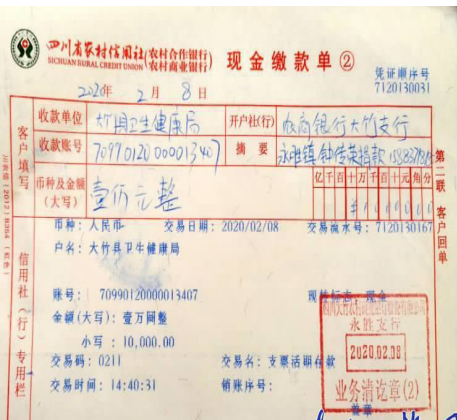 四川省农村信用社(农村合作银行)(农村商业银行) 现金缴款单②
SICHUAN RURAL CREDIT UNION
凭证顺序号
7120130031
2020年2月8日
客户填写
收款单位 大竹县卫生健康局 开户社(行) 农商银行大竹支行
收款账号 70990120000013407 摘要 永胜镇 捐款
币种及金额(大写) 壹万元整
亿千百十万千百十元角分
¥1000000
第二联 客户回单
信用社(行)专用栏
币种:人民币 交易日期:2020/02/08 交易流水号:7120130167
户名:大竹县卫生健康局
账号:70990120000013407 现转标志:现金
金额(大写):壹万圆整
小写:10,000.00
交易码:0211 交易名:支票活期存款
交易时间:14:40:31 销账序号:
永胜支行
2020.02.08
业务清讫章(2)
签章